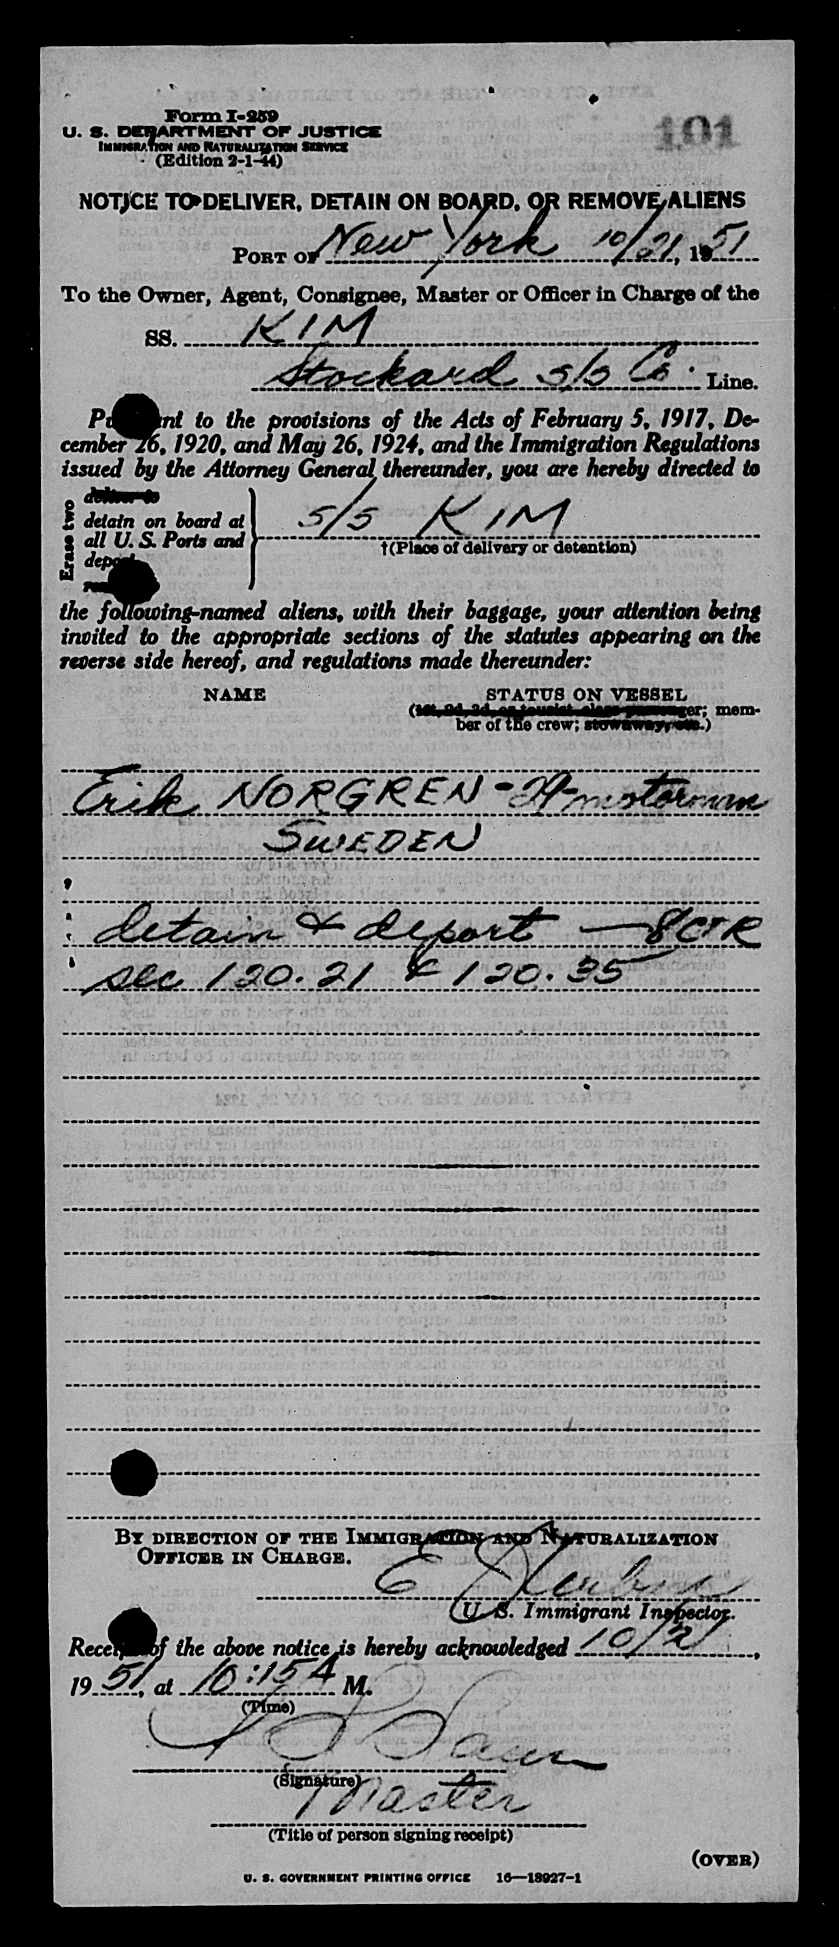 Form I-259
U. S. DEPARTMENT OF JUSTICE
IMMIGRATION AND NATURALIZATION SERVICE
(Edition 2-1-44)
101
NOTICE TO DELIVER, DETAIN ON BOARD, OR REMOVE ALIENS
PORT OF New York 10/21, 1951
To the Owner, Agent, Consignee, Master or Officer in Charge of the
SS. KIM
Stockard S/S Co. Line.
Pursuant to the provisions of the Acts of February 5, 1917, De-
cember 26, 1920, and May 26, 1924, and the Immigration Regulations
issued by the Attorney General thereunder, you are hereby directed to
Erase two
deliver to
detain on board at
all U. S. Ports and
deport
S/S KIM
†(Place of delivery or detention)
the following-named aliens, with their baggage, your attention being
invited to the appropriate sections of the statutes appearing on the
reverse side hereof, and regulations made thereunder:
NAME STATUS ON VESSEL
(1st, 2d, 3d, or tourist class passenger; mem-
ber of the crew; stowaway, etc.)
Erik NORGREN - motorman
SWEDEN
detain & deport — 8 CFR
sec 120.21 & 120.35
BY DIRECTION OF THE IMMIGRATION AND NATURALIZATION
OFFICER IN CHARGE.
U. S. Immigrant Inspector.
Receipt of the above notice is hereby acknowledged 10/21,
1951, at 10:15A M.
(Time)
(Signature)
Master
(Title of person signing receipt)
(OVER)
U. S. GOVERNMENT PRINTING OFFICE 16—18927-1